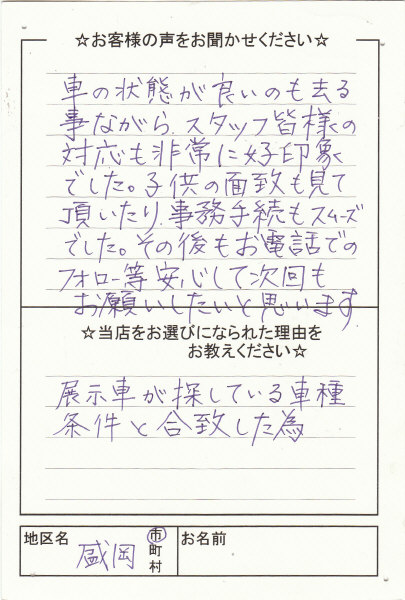 ☆お客様の声をお聞かせください☆
車の状態が良いのも去る
事ながら、スタッフ皆様の
対応も非常に好印象
でした。子供の面致も見て
頂いたり、事務手続もスムーズ
でした。その後もお電話での
フォロー等安心して次回も
お願いしたいと思います
☆当店をお選びになられた理由を
お教えください☆
展示車が探している車種
条件と合致した為
地区名 盛岡 市町村 お名前